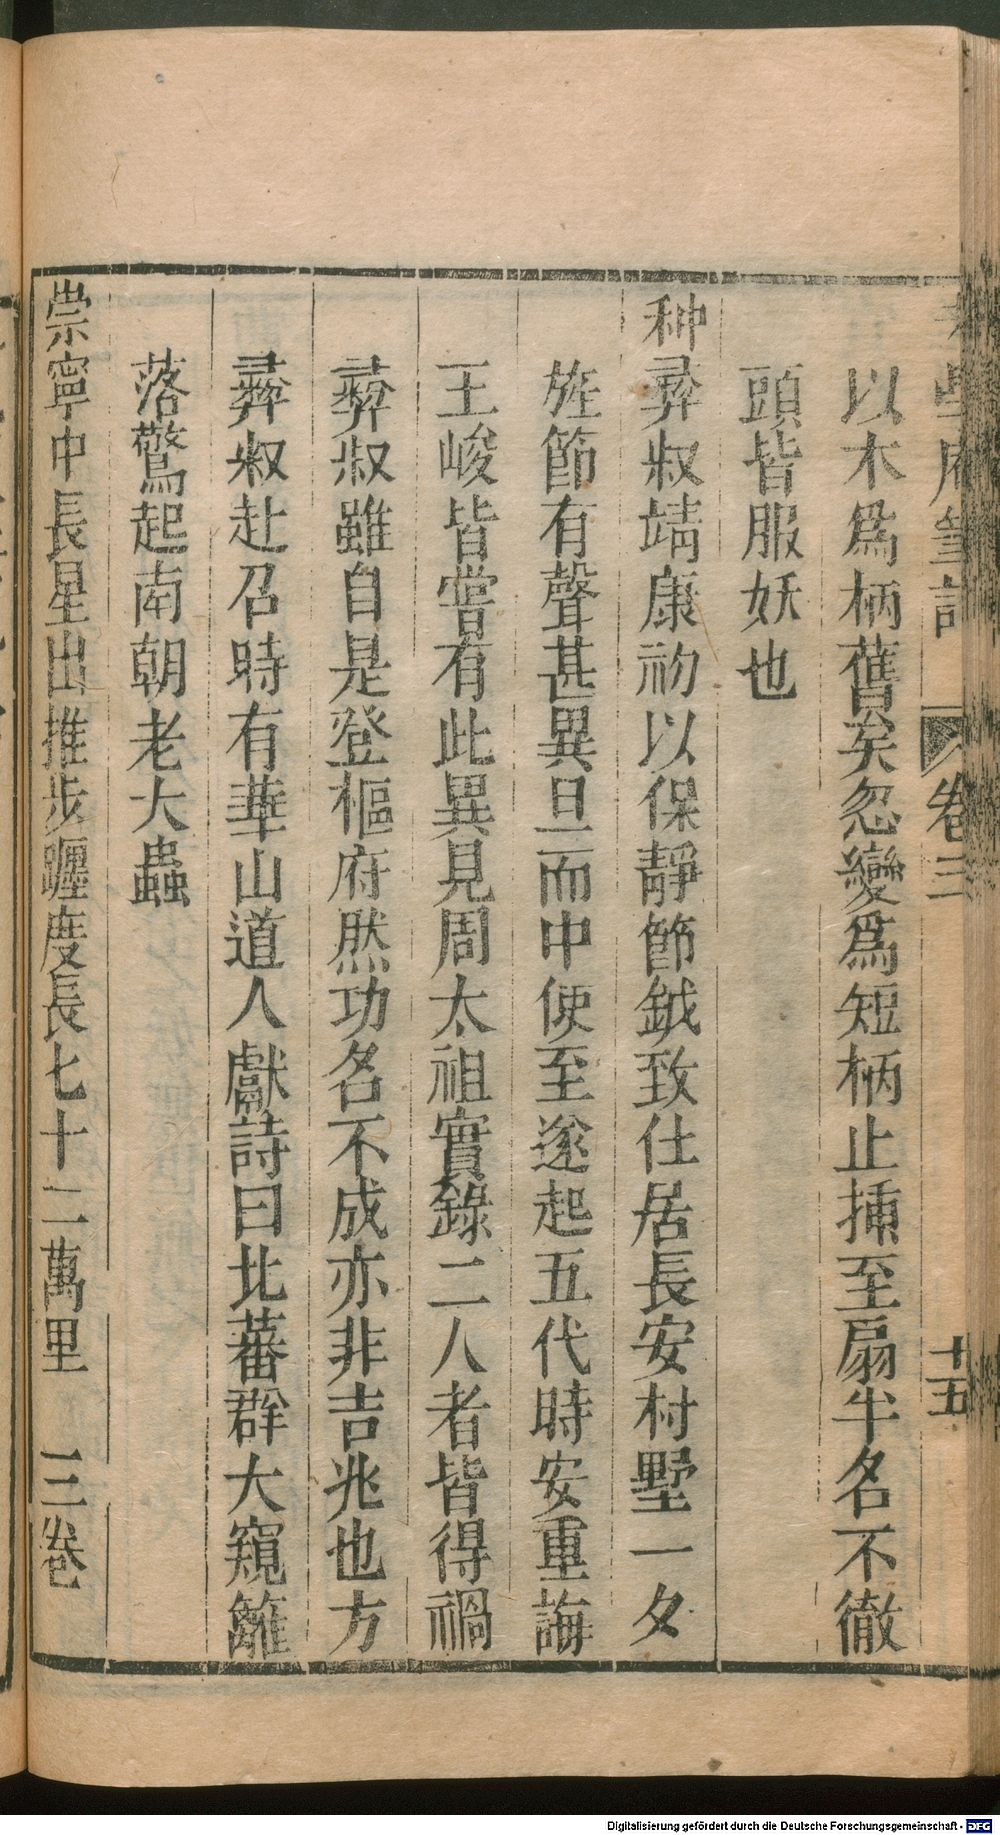 老學庵筆記 卷三 十五
以木爲柄舊矣忽變爲短柄止揷至扇半名不徹
頭皆服妖也
种彛叔靖康初以保靜節鉞致仕居長安村墅一夕
旌節有聲甚異旦而中使至遂起五代時安重誨
王峻皆嘗有此異見周太祖實錄二人者皆得禍
彛叔雖自是登樞府然功名不成亦非吉兆也方
彛叔赴召時有華山道人獻詩曰北蕃群犬窺籬
落驚起南朝老大蟲
崇寧中長星出推步躔度長七十二萬里 三卷
Digitalisierung gefördert durch die Deutsche Forschungsgemeinschaft - DFG